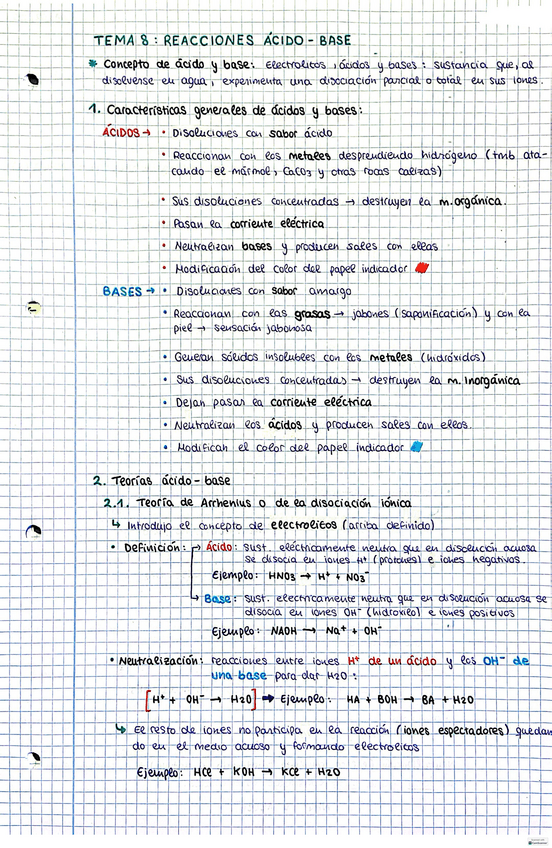 TEMA 8: REACCIONES ÁCIDO - BASE
* Concepto de ácido y base: Electrolitos, ácidos y bases: sustancia que, al
disolverse en agua, experimenta una disociación parcial o total en sus iones.
1. Características generales de ácidos y bases:
ÁCIDOS → • Disoluciones con sabor ácido
• Reaccionan con los metales desprendiendo hidrógeno (tmb ata-
cando el mármol, CaCO3 y otras rocas calizas)
• Sus disoluciones concentradas → destruyen la m. orgánica.
• Pasan la corriente eléctrica
• Neutralizan bases y producen sales con ellas
• Modificación del color del papel indicador
BASES → • Disoluciones con sabor amargo
• Reaccionan con las grasas → jabones (saponificación) y con la
piel → sensación jabonosa
• Generan sólidos insolubles con los metales (hidróxidos)
• Sus disoluciones concentradas → destruyen la m. Inorgánica
• Dejan pasar la corriente eléctrica
• Neutralizan los ácidos y producen sales con ellos.
• Modifican el color del papel indicador
2. Teorías ácido - base
2.1. Teoría de Arrhenius o de la disociación iónica
↳ Introdujo el concepto de electrolitos (arriba definido)
• Definición: → Ácido: Sust. eléctricamente neutra que en disolución acuosa
se disocia en iones H⁺ (protones) e iones negativos.
Ejemplo: HNO3 → H⁺ + NO3⁻
↳ Base: Sust. electricamente neutra que en disolución acuosa se
disocia en iones OH⁻ (hidroxilo) e iones positivos
Ejemplo: NAOH → Na⁺ + OH⁻
• Neutralización: reacciones entre iones H⁺ de un ácido y los OH⁻ de
una base para dar H2O:
[H⁺ + OH⁻ → H2O] → Ejemplo: HA + BOH → BA + H2O
↳ El resto de iones no participa en la reacción (iones espectadores) quedan
do en el medio acuoso y formando electrolitos
Ejemplo: HCl + KOH → KCl + H2O